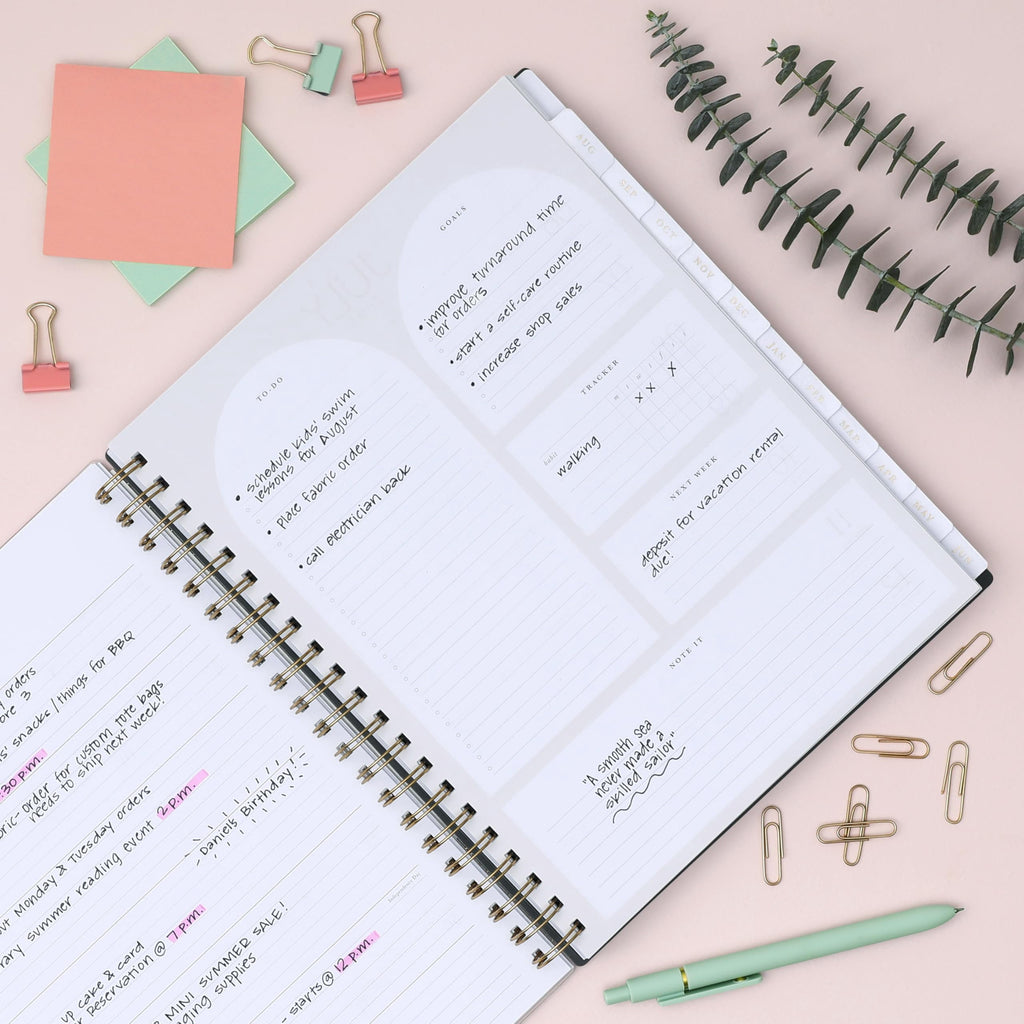 AUG
SEP
OCT
NOV
DEC
JAN
FEB
MAR
APR
MAY
JUN
GOALS
• improve turnaround time
for orders
• start a self-care routine
• increase shop sales
TO-DO
• schedule kids' swim
lessons for August
• place fabric order
• call electrician back
TRACKER
habit
walking
NEXT WEEK
deposit for vacation rental
due!
NOTE IT
"A smooth sea
never made a
skilled sailor"
orders
3
snacks/things for BBQ
:30 p.m.
-order for custom tote bags
needs to ship next week!
Monday & Tuesday orders
summer reading event 2 p.m.
Daniel's Birthday
Independence Day
up cake & card
reservation @ 7 p.m.
MINI SUMMER SALE!
supplies
- starts @ 12 p.m.